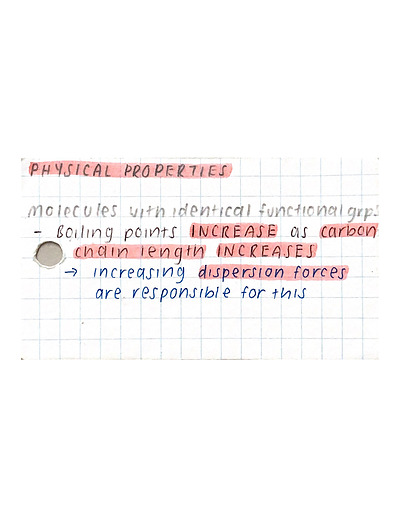 PHYSICAL PROPERTIES
molecules with identical functional grps
- Boiling points INCREASE as carbon
chain length INCREASES
→ increasing dispersion forces
are responsible for this